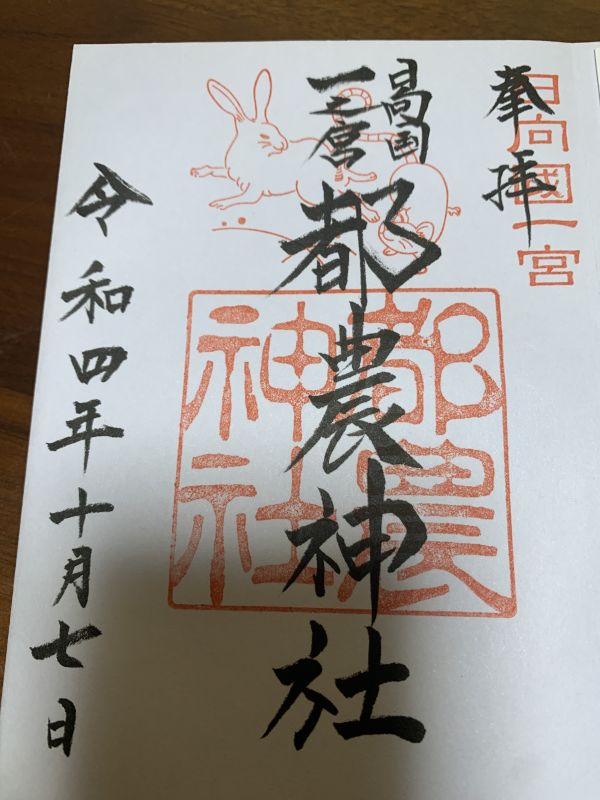 奉拝
日向國一宮
日向国
一之宮
都農神社
都農
神社
令和四年十月七日